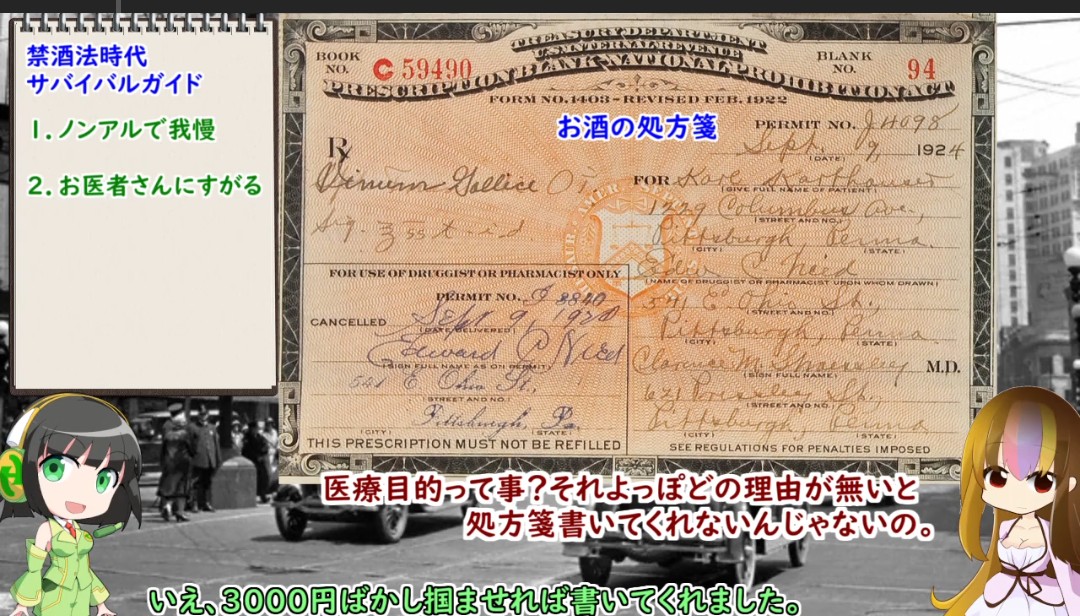 禁酒法時代
サバイバルガイド
1.ノンアルで我慢
2.お医者さんにすがる
TREASURY DEPARTMENT
U.S. INTERNAL REVENUE
BOOK NO. C 59490
BLANK NO. 94
PRESCRIPTION BLANK-NATIONAL PROHIBITION ACT
FORM NO. 1403 - REVISED FEB. 1922
お酒の処方箋
PERMIT NO.
Sept. 9, 1924
(DATE)
Rx
FOR
(GIVE FULL NAME OF PATIENT)
1229 Columbus Ave.,
(STREET AND NO.)
Pittsburgh, Penna.
(CITY) (STATE)
(NAME OF DRUGGIST OR PHARMACIST UPON WHOM DRAWN)
541 E. Ohio St.,
(STREET AND NO.)
Pittsburgh, Penna
(CITY) (STATE)
M.D.
(SIGN FULL NAME)
(STREET AND NO.)
Pittsburgh, Penna
(CITY) (STATE)
SEE REGULATIONS FOR PENALTIES IMPOSED
FOR USE OF DRUGGIST OR PHARMACIST ONLY
PERMIT NO.
CANCELLED Sept 9,
(DATE DELIVERED)
Edward C
(SIGN FULL NAME AS ON PERMIT)
541 E Ohio St.,
(STREET AND NO.)
Pittsburgh, Pa.
(CITY) (STATE)
THIS PRESCRIPTION MUST NOT BE REFILLED
医療目的って事?それよっぽどの理由が無いと
処方箋書いてくれないんじゃないの。
いえ、3000円ばかし掴ませれば書いてくれました。